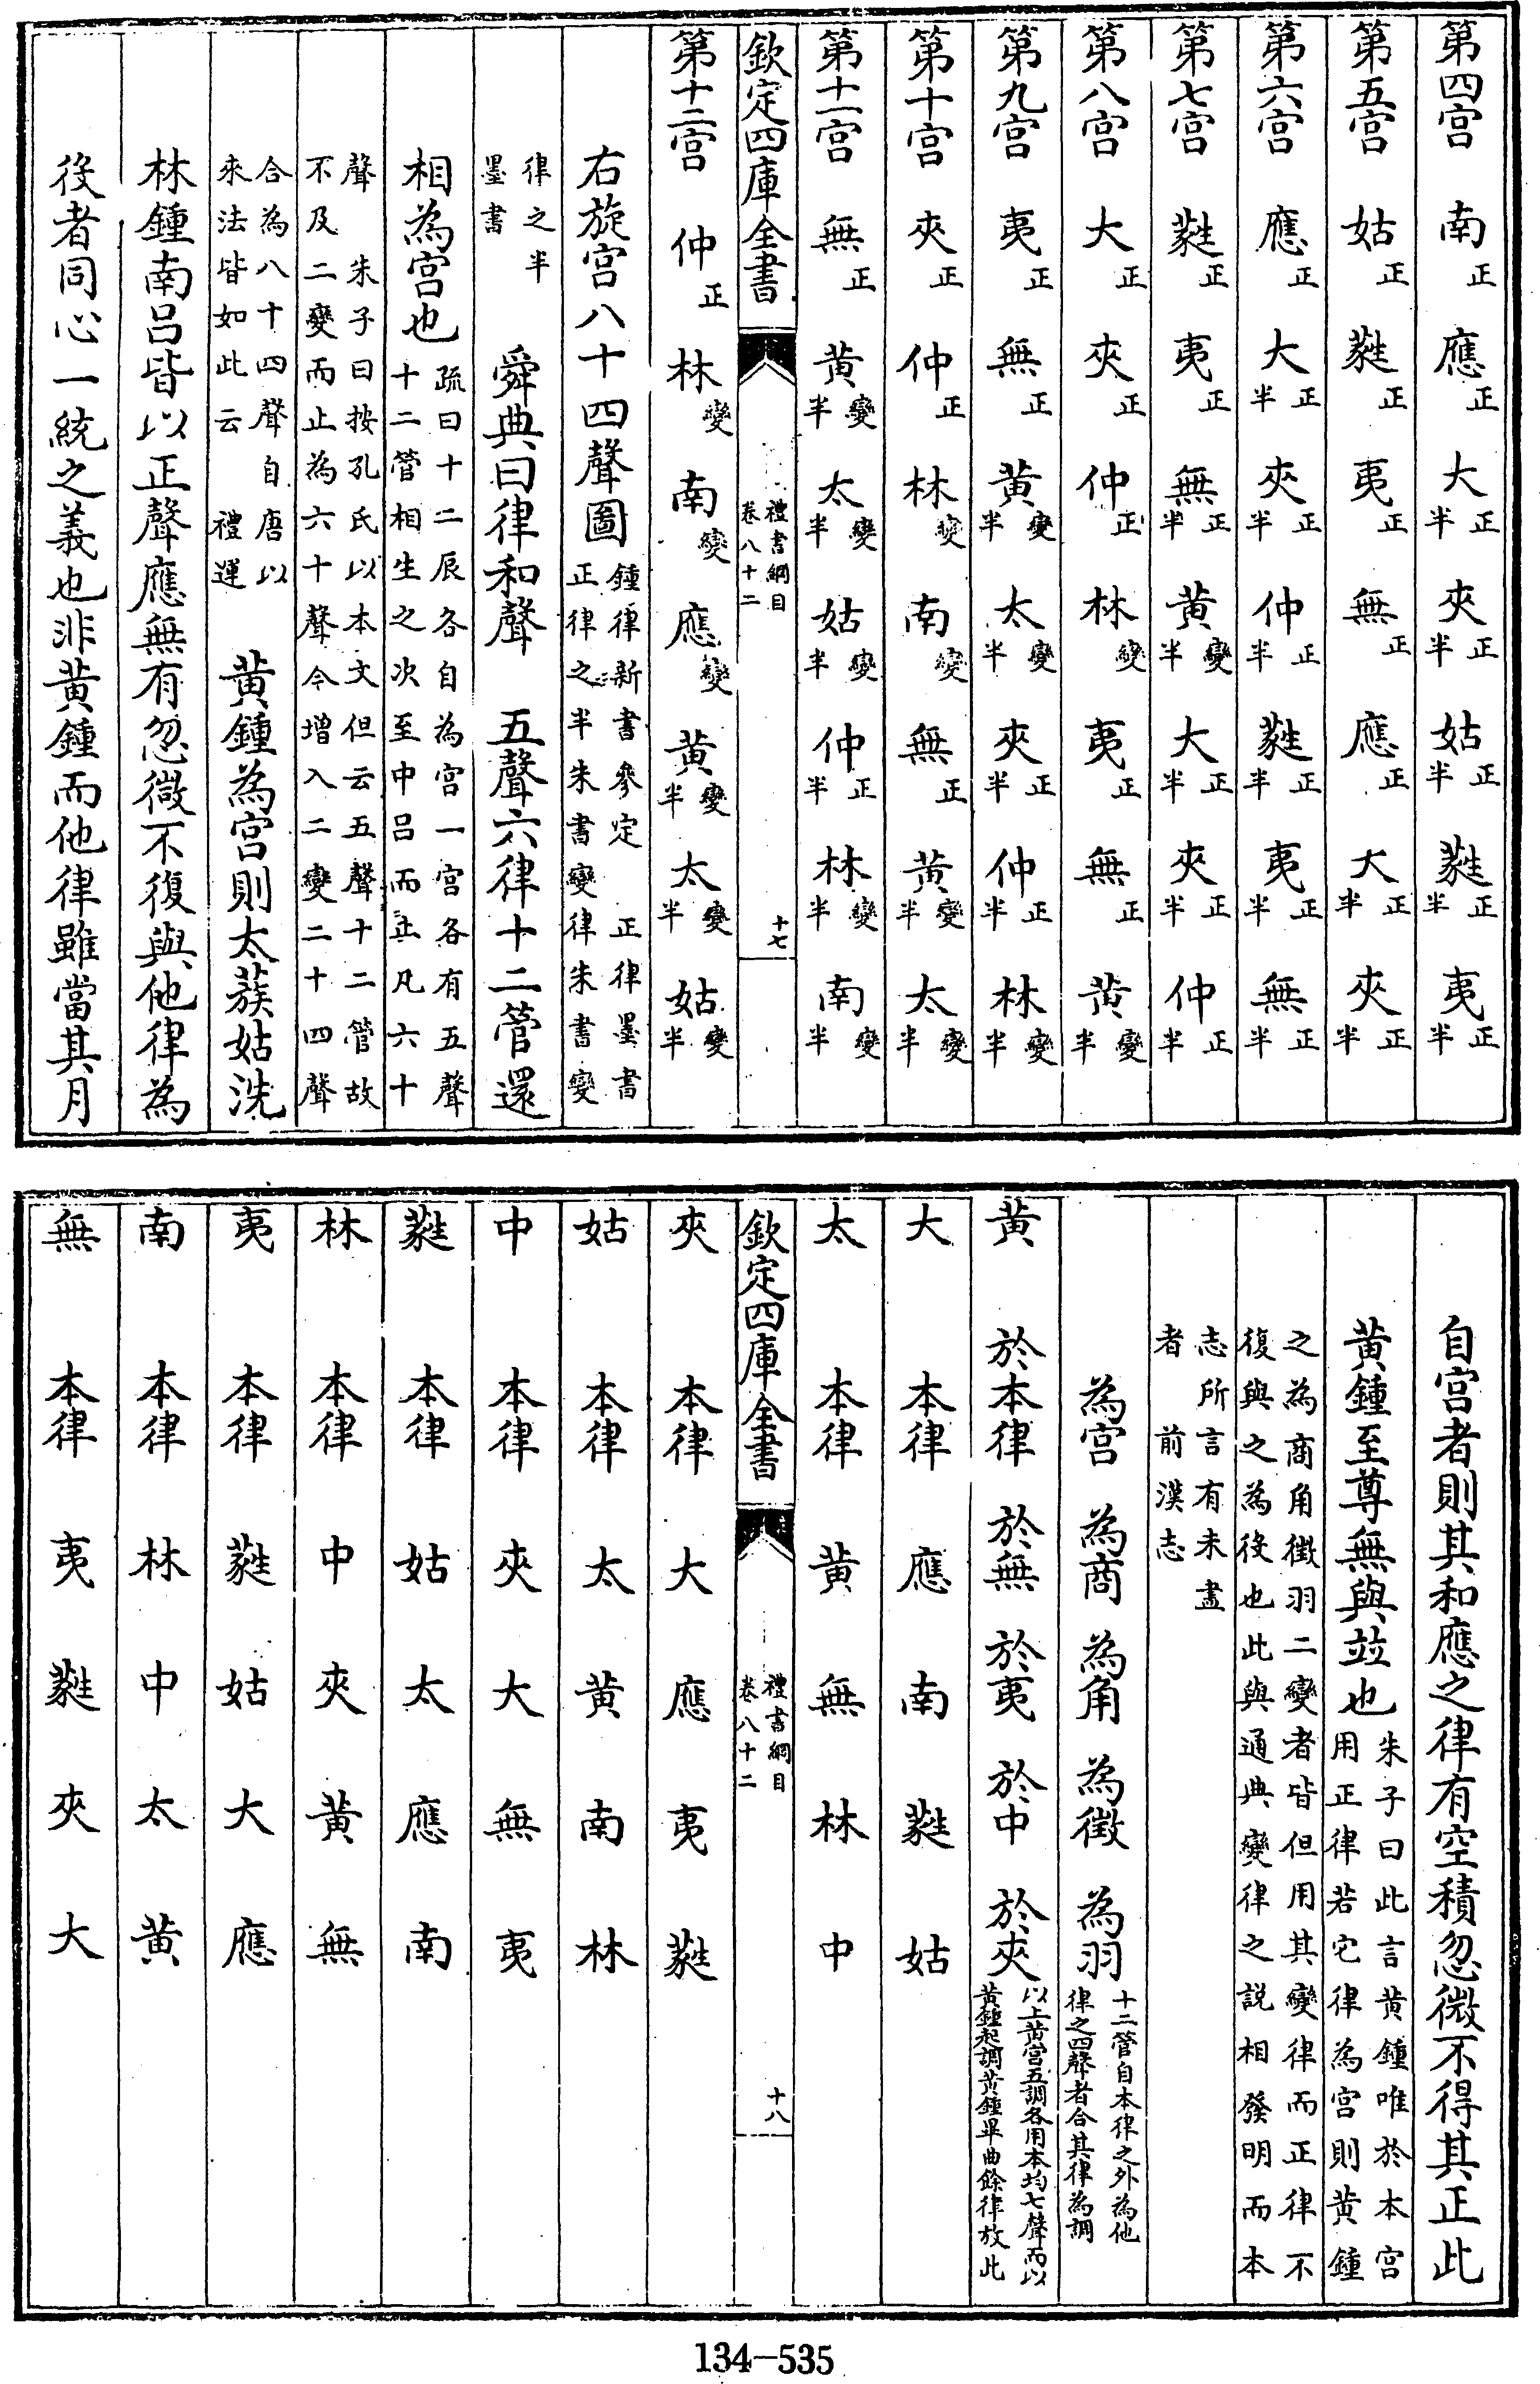 第四宫　南正　應正　大正半　夾正半　姑正半　蕤正半　夷正半
第五宫　姑正　蕤正　夷正　無正　應正　大正半　夾正半
第六宫　應正　大正半　夾正半　仲正半　蕤正半　夷正半　無正半
第七宫　蕤正　夷正　無正半　黄變半　大正半　夾正半　仲正半
第八宫　大正　夾正　仲正　林變　夷正　無正　黄變半
第九宫　夷正　無正　黄變半　太變半　夾正半　仲正半　林變半
第十宫　夾正　仲正　林變　南變　無正　黄變半　太變半
第十一宫　無正　黄變半　太變半　姑變半　仲正半　林變半　南變半
欽定四庫全書　禮書綱目卷八十二　十七
第十二宫　仲正　林變　南變　應變　黄變半　太變半　姑變半
右旋宫八十四聲圖鍾律新書參定　正律墨書正律之半朱書變律朱書變
律之半墨書　舜典曰律和聲　五聲六律十二管還
相為宫也疏曰十二辰各自為宫一宫各有五聲十二管相生之次至中吕而止凡六十
聲　朱子曰按孔氏以本文但云五聲十二管故不及二變而止為六十聲今増入二變二十四聲
合為八十四聲自唐以來法皆如此云　禮運　黄鍾為宫則太蔟姑洗
林鍾南吕皆以正聲應無有忽微不復與他律為
後者同心一統之義也非黄鍾而他律雖當其月
自宫者則其和應之律有空積忽微不得其正此
黄鍾至尊無與竝也朱子曰此言黄鍾唯於本宫用正律若它律為宫則黄鍾
之為商角徵羽二變者皆但用其變律而正律不復與之為後也此與通典變律之説相發明而本
志所言有未盡者　前漢志
為宫　為商　為角　為徵　為羽十二管自本律之外為他律之四聲者合其律為調
黄　於本律　於無　於夷　於中　於夾以上黄宫五調各用本均七聲而以黄鍾起調黄鍾畢曲餘律放此
大　本律　應　南　蕤　姑
太　本律　黄　無　林　中
欽定四庫全書　禮書綱目卷八十二　十八
夾　本律　大　應　夷　蕤
姑　本律　太　黄　南　林
中　本律　夾　大　無　夷
蕤　本律　姑　太　應　南
林　本律　中　夾　黄　無
夷　本律　蕤　姑　大　應
南　本律　林　中　太　黄
無　本律　夷　蕤　夾　大
134-535